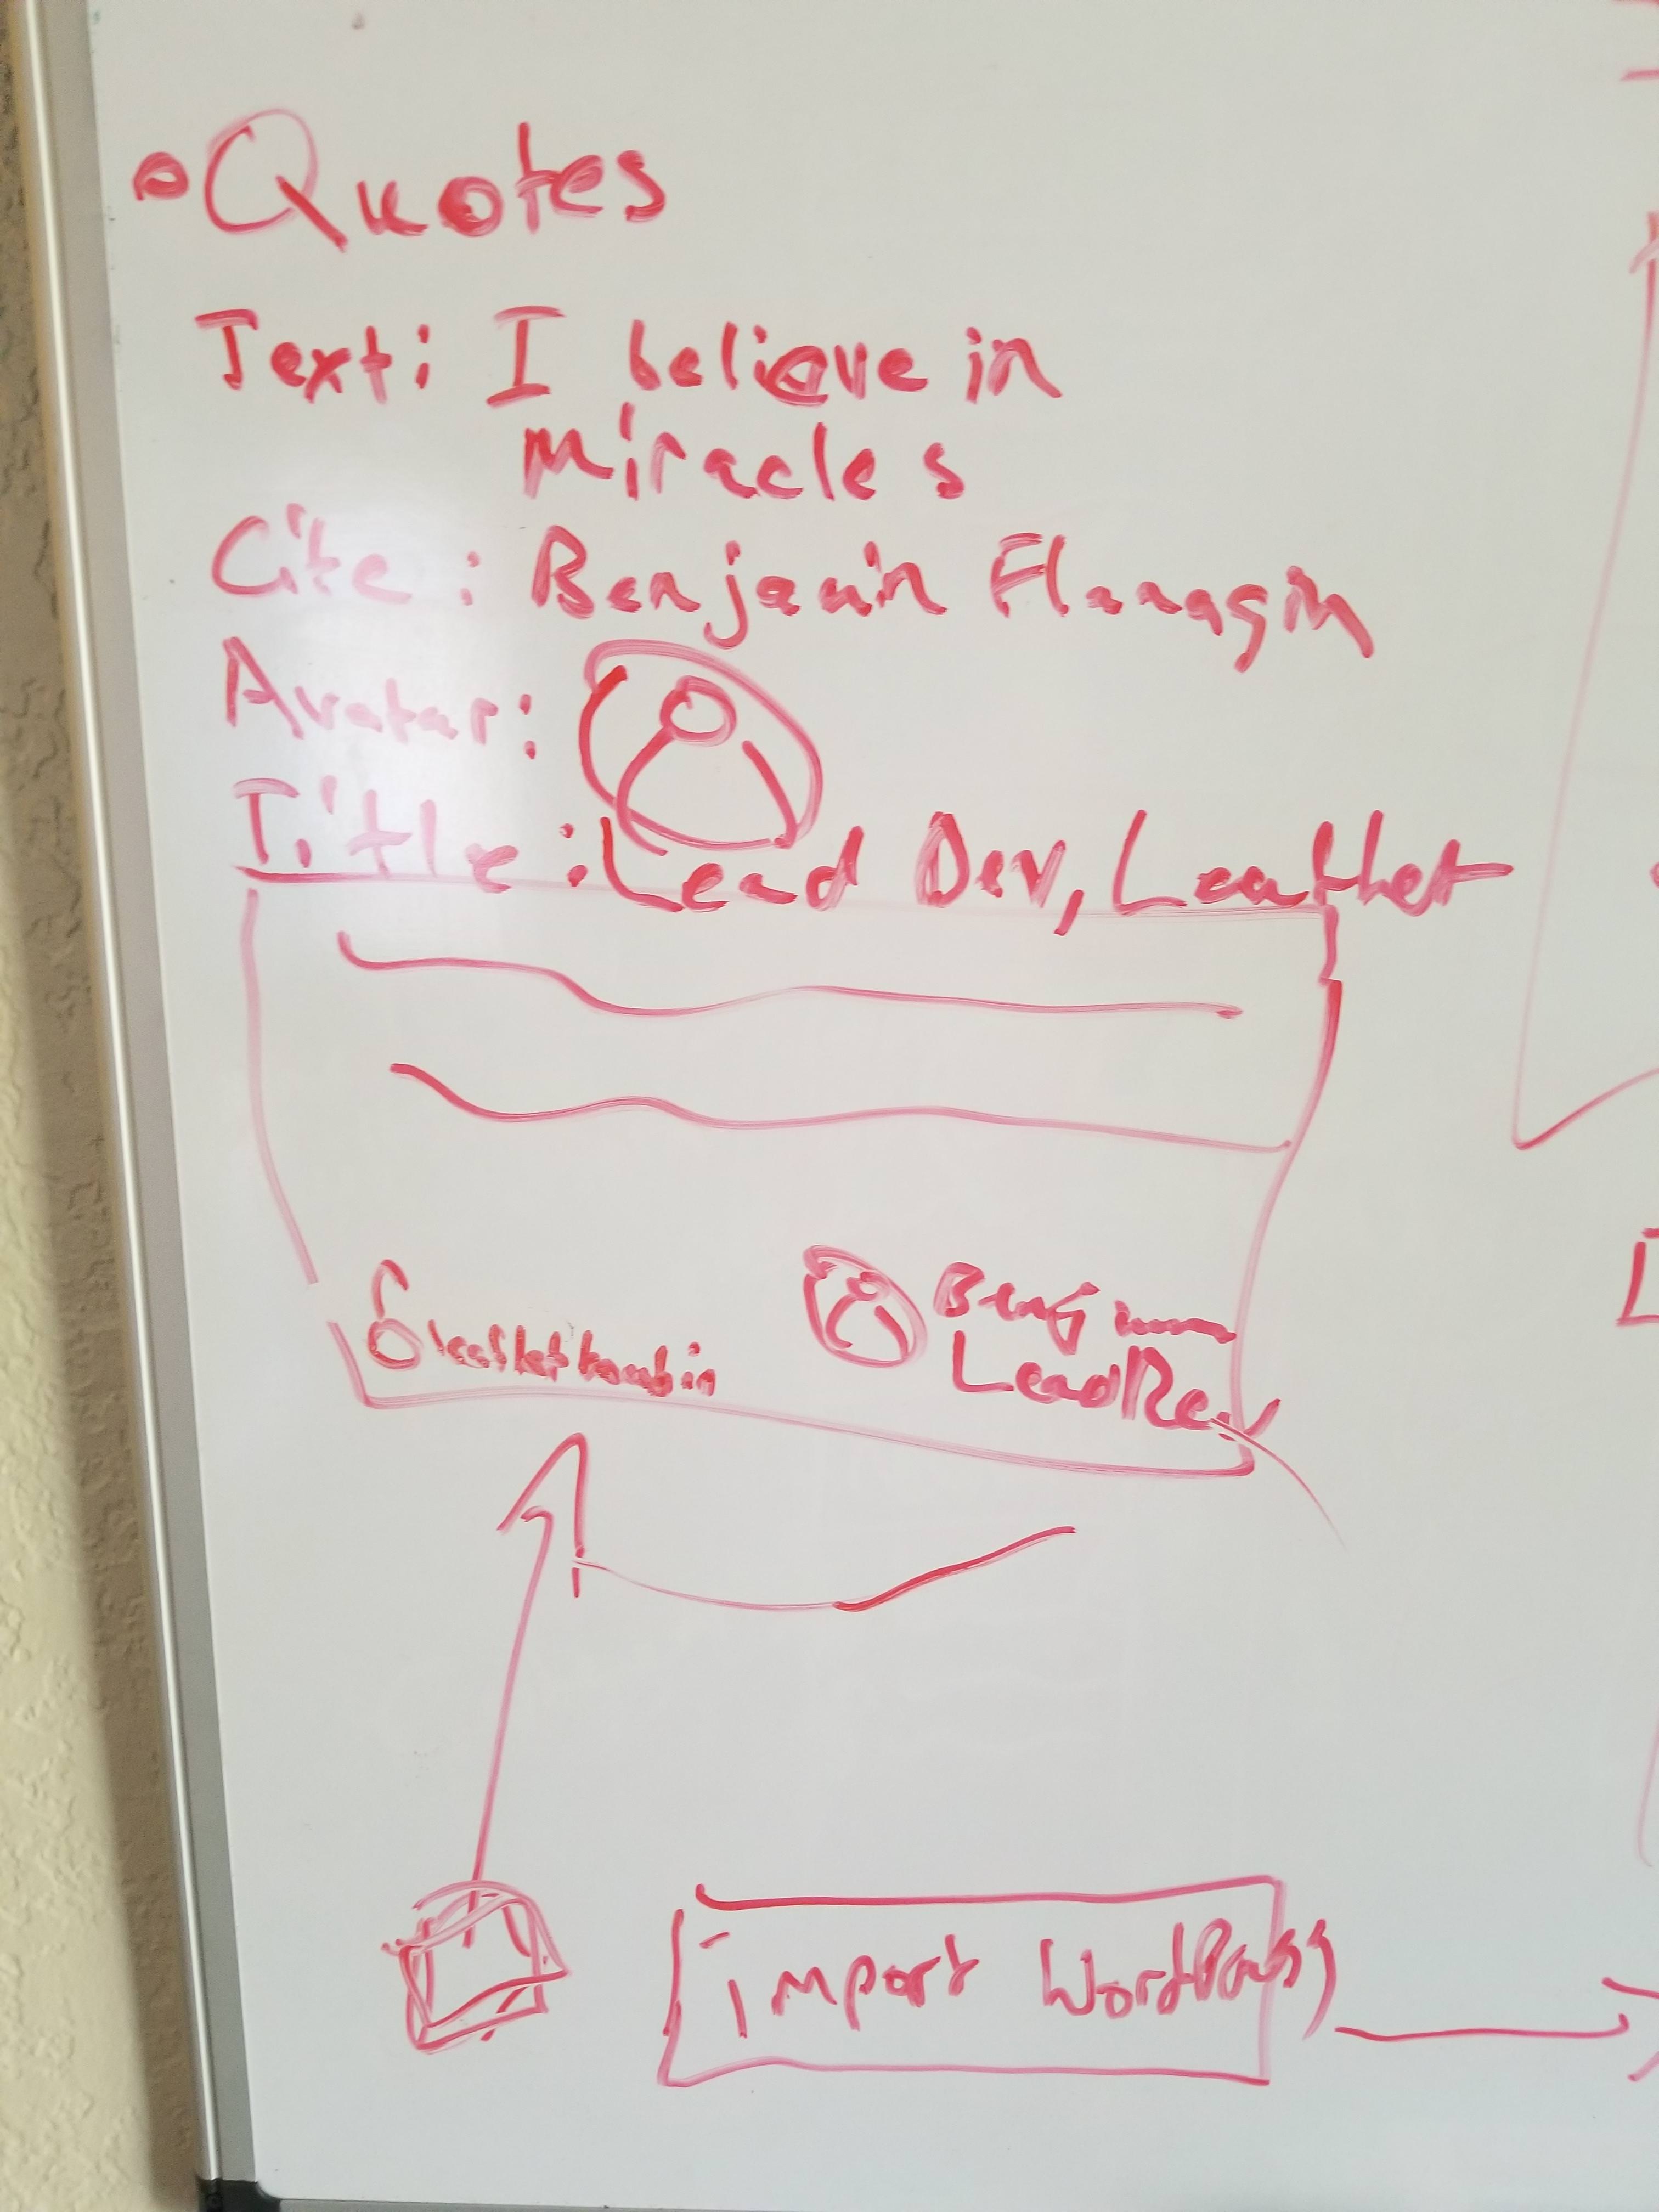 Quotes
Text: I believe in
Miracles
Cite: Benjamin Flanagin
Avatar:
Title: Lead Dev, Leaflet
Lead Dev
import WordPress